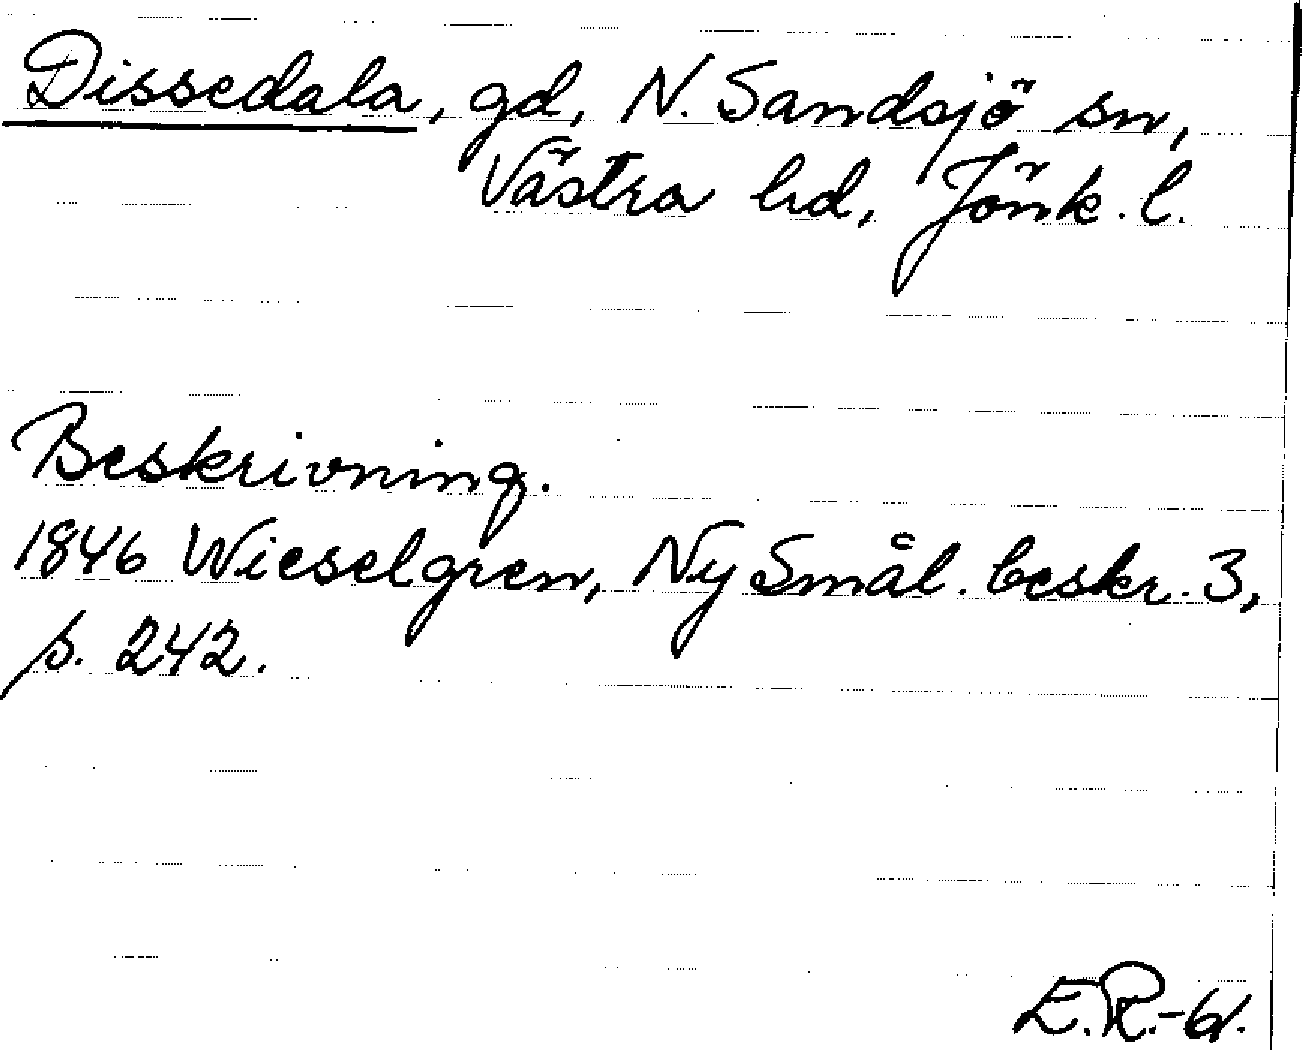 Dissedala, gd, N. Sandsjö sn,
Västra hd, Jönk. l.
Beskrivning.
1846 Wieselgren, Ny Smål. beskr. 3,
s. 242.
E.R.-61.